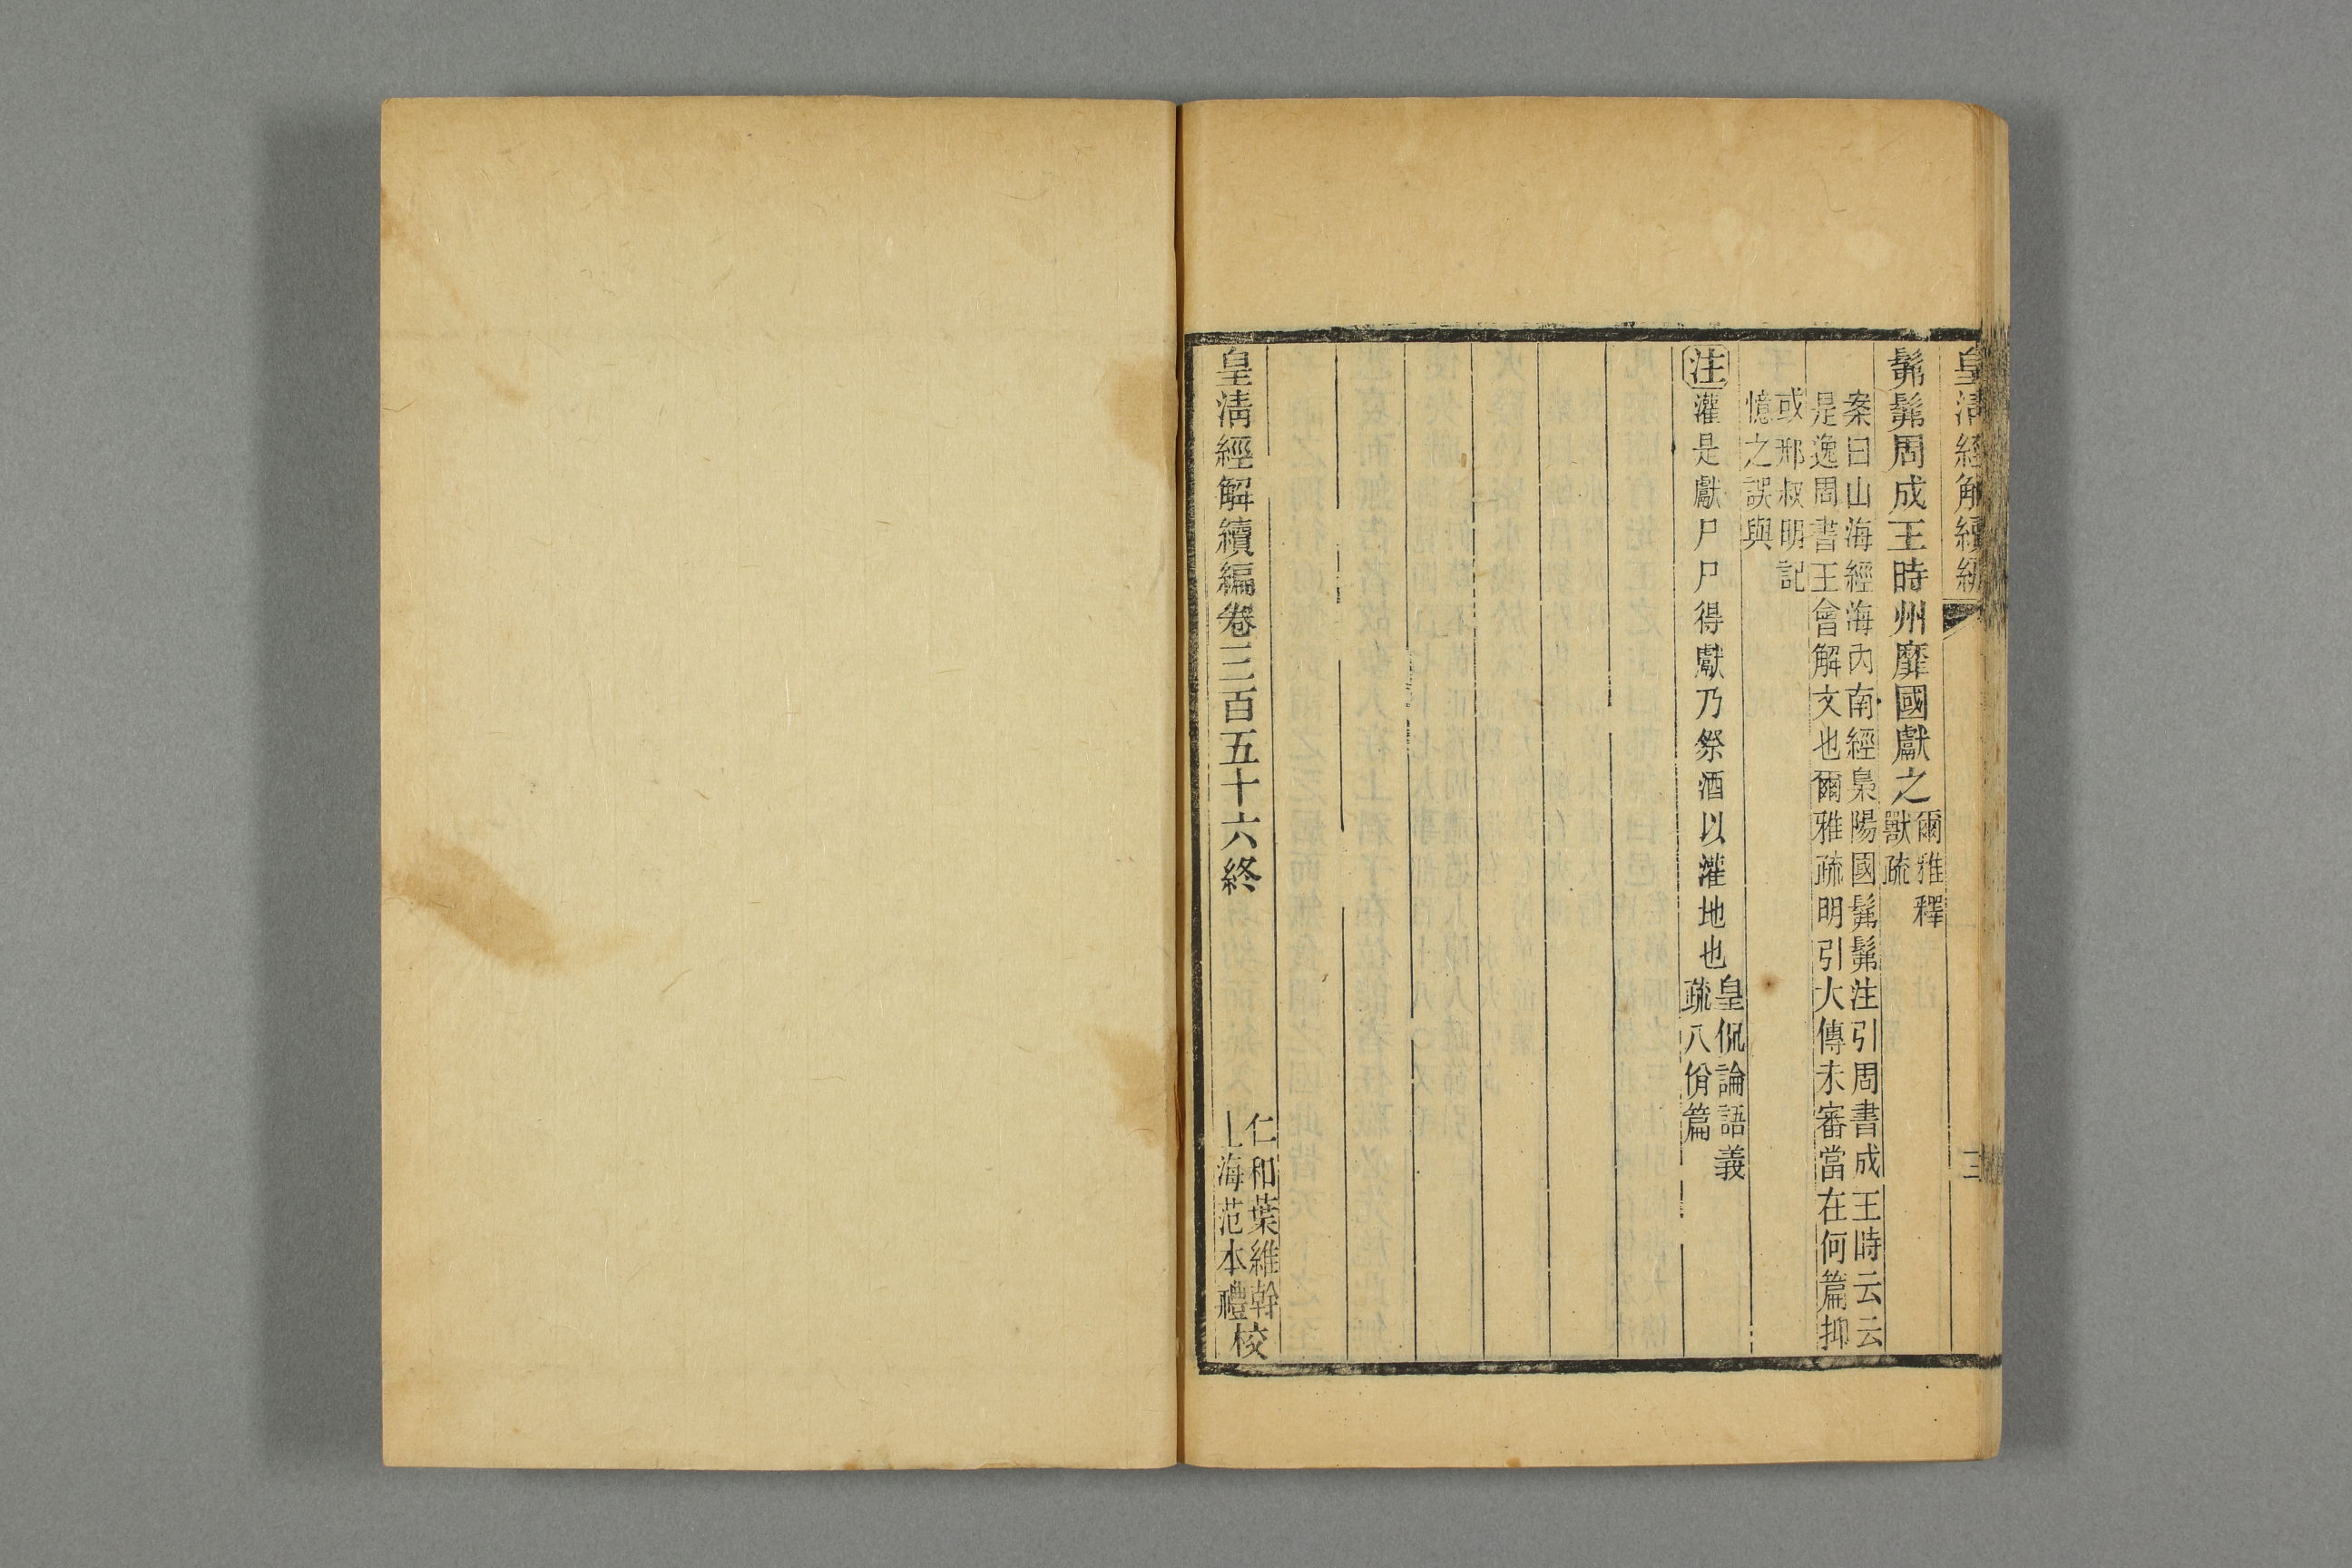 皇清經解續編 三
髴髴周成王時州靡國獻之
爾雅釋
獸疏
案曰山海經海內南經梟陽國髴髴注引周書成王時云云
是逸周書王會解文也爾雅疏明引大傳未審當在何篇抑
或邢叔明記
憶之誤與
注灌是獻尸尸得獻乃祭酒以灌地也
皇侃論語義
疏八佾篇
皇清經解續編卷三百五十六終
仁和葉維幹
上海范本禮
校